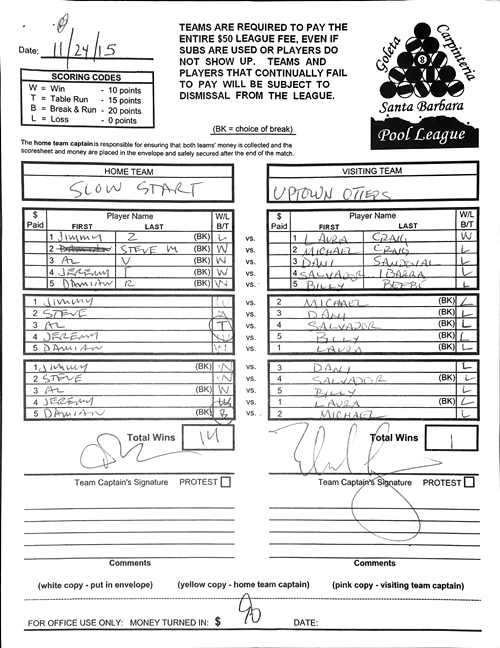 Date: 11/24/15
TEAMS ARE REQUIRED TO PAY THE
ENTIRE $50 LEAGUE FEE, EVEN IF
SUBS ARE USED OR PLAYERS DO
NOT SHOW UP. TEAMS AND
PLAYERS THAT CONTINUALLY FAIL
TO PAY WILL BE SUBJECT TO
DISMISSAL FROM THE LEAGUE.
(BK = choice of break)
SCORING CODES
W = Win - 10 points
T = Table Run - 15 points
B = Break & Run - 20 points
L = Loss - 0 points
Goleta Carpinteria
8
Santa Barbara
Pool League
The home team captain is responsible for ensuring that both teams' money is collected and the
scoresheet and money are placed in the envelope and safely secured after the end of the match.
HOME TEAM VISITING TEAM
SLOW START UPTOWN OTTERS
$ Paid Player Name FIRST LAST W/L B/T $ Paid Player Name FIRST LAST W/L B/T
1 JIMMY Z (BK) L vs. 1 LAURA CRAIG W
2 STEVE M (BK) W vs. 2 MICHAEL CRAIG L
3 AL V (BK) W vs. 3 DANI SANDOVAL L
4 JEREMY T (BK) W vs. 4 SALVADOR IBARRA L
5 DAMIAN R (BK) W vs. 5 BILLY L
1 JIMMY W vs. 2 MICHAEL (BK) L
2 STEVE W vs. 3 DANI (BK) L
3 AL T vs. 4 SALVADOR (BK) L
4 JEREMY W vs. 5 BILLY (BK) L
5 DAMIAN W vs. 1 LAURA (BK) L
1 JIMMY (BK) W vs. 3 DANI L
2 STEVE W vs. 4 SALVADOR (BK) L
3 AL (BK) W vs. 5 BILLY L
4 JEREMY W vs. 1 LAURA (BK) L
5 DAMIAN (BK) B vs. 2 MICHAEL L
Total Wins 14 Total Wins 1
Team Captain's Signature PROTEST Team Captain's Signature PROTEST
Comments Comments
(white copy - put in envelope) (yellow copy - home team captain) (pink copy - visiting team captain)
FOR OFFICE USE ONLY: MONEY TURNED IN: $ 90 DATE: